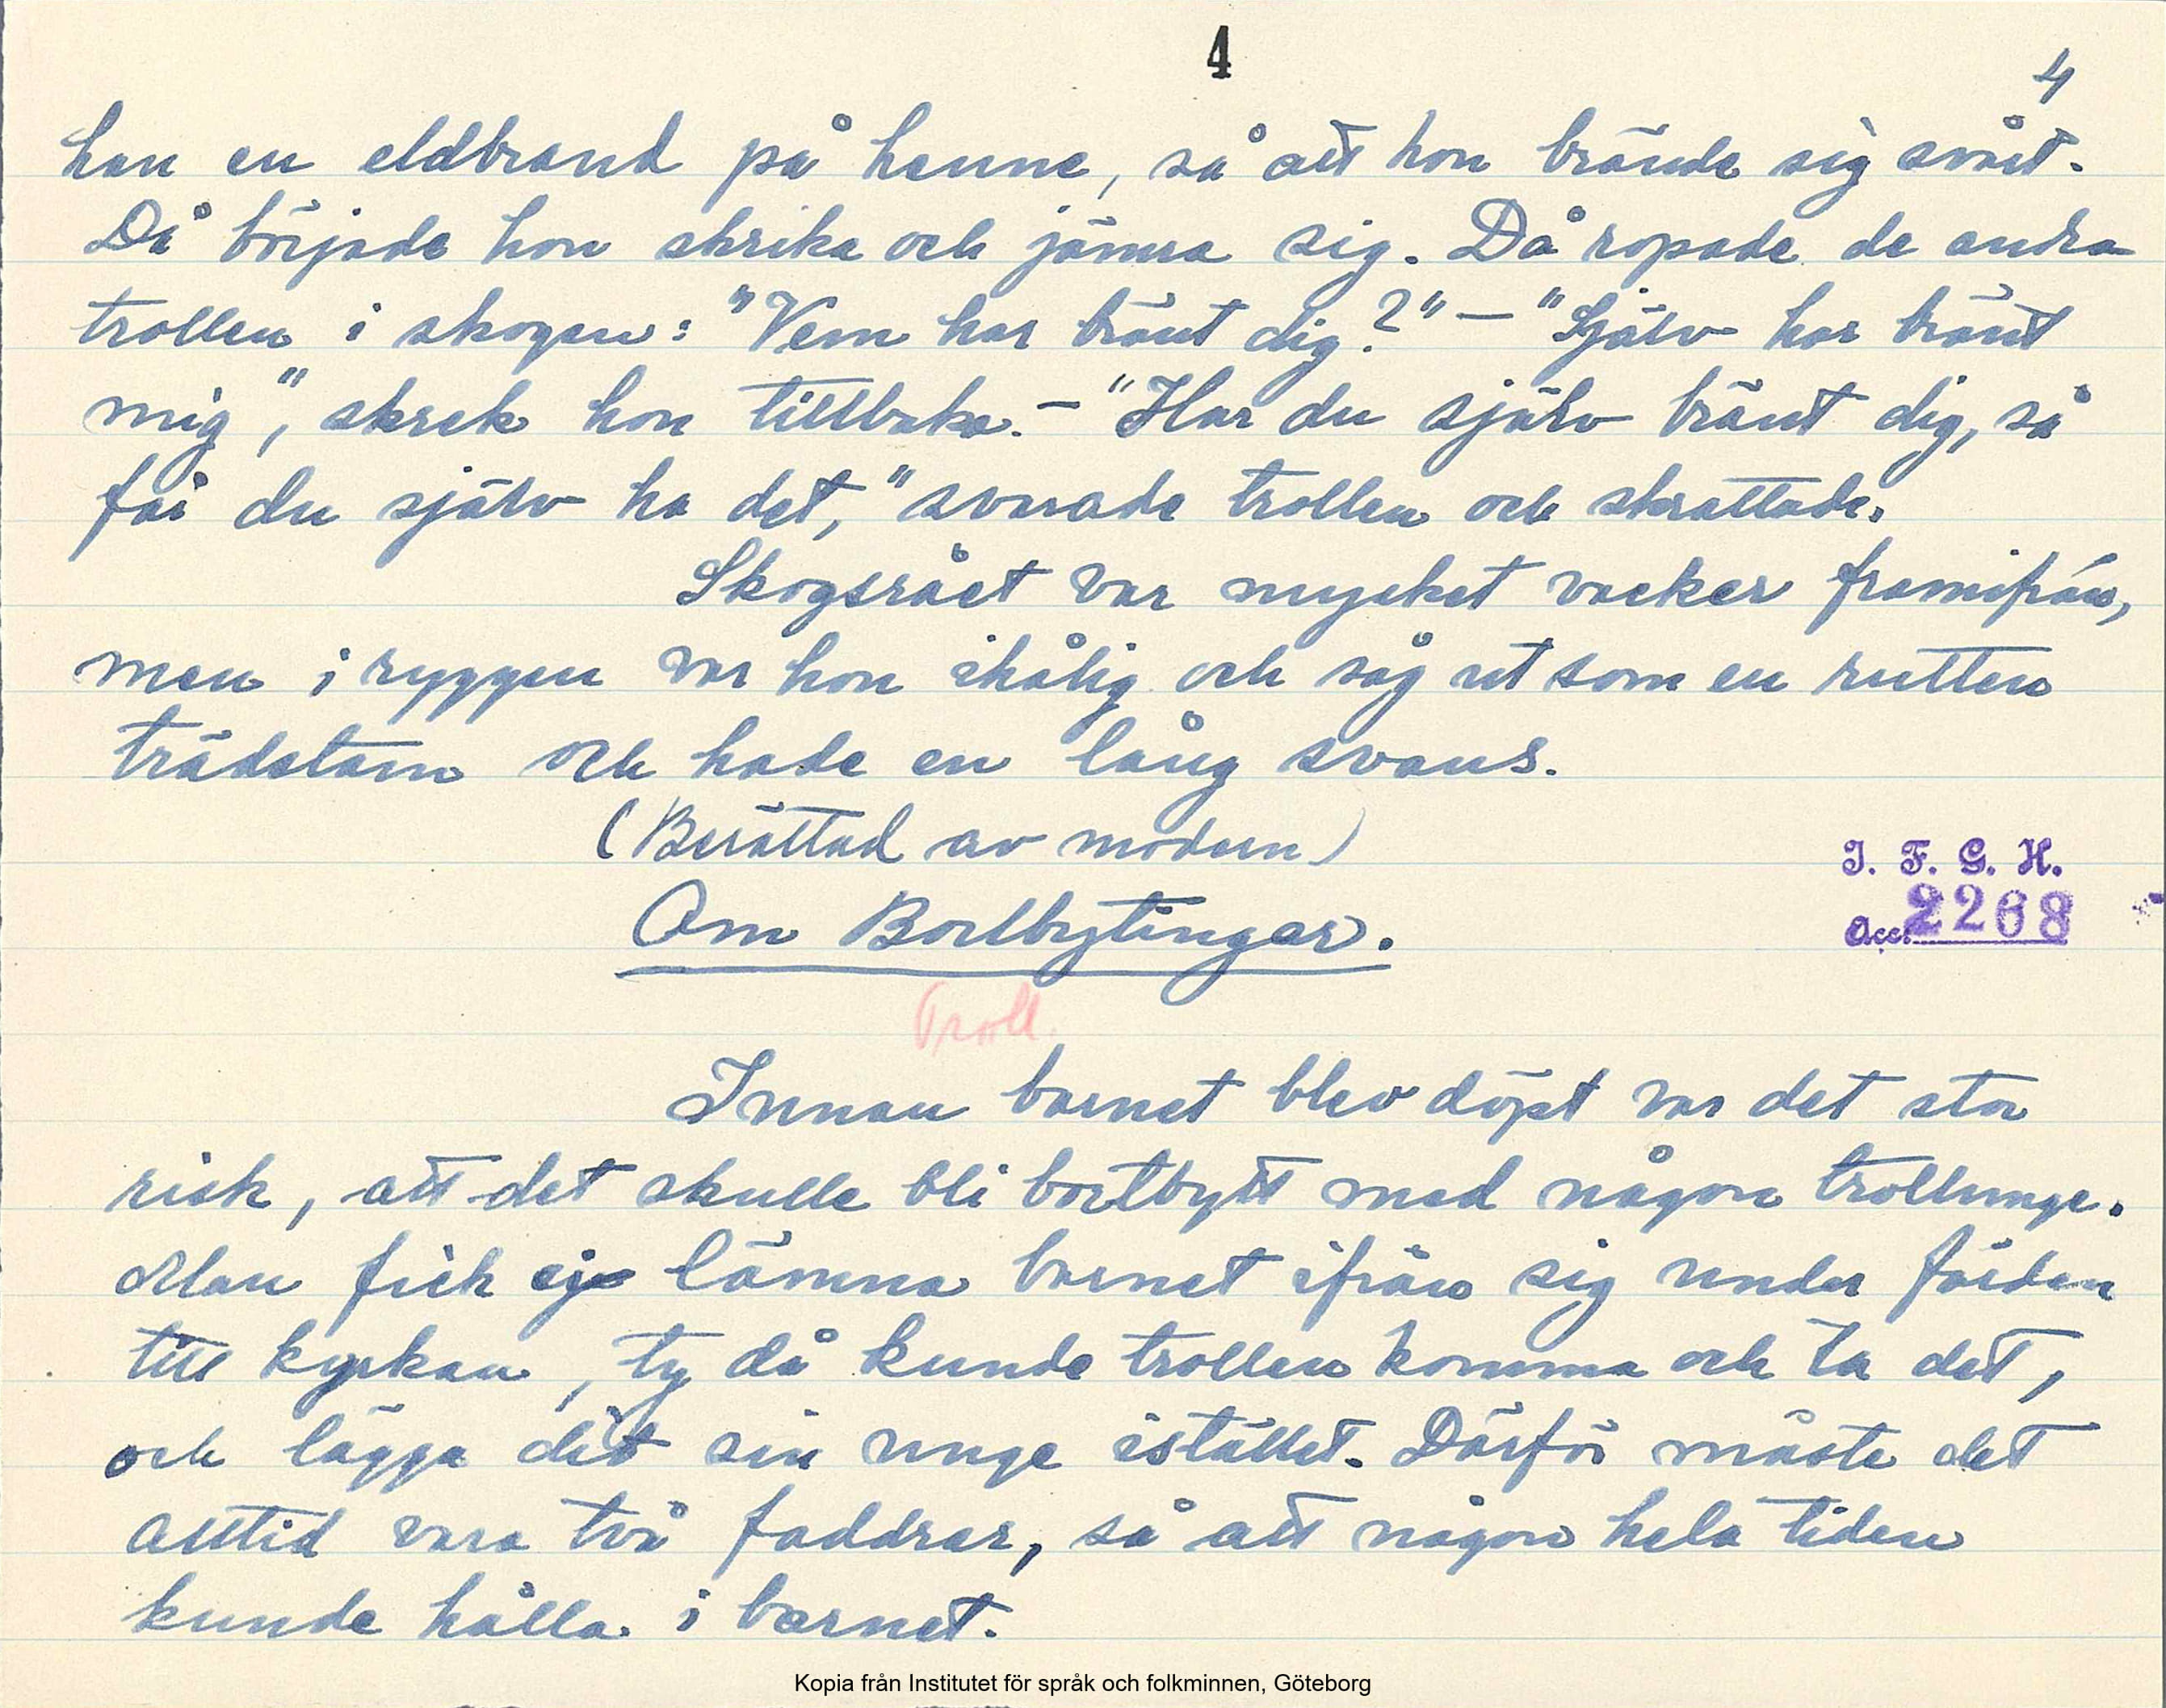 4
4
han en eldbrand på henne, så att hon brände sig svårt.
Då började hon skrika och jämra sig. Då ropade de andra
trollen i skogen: "Vem har bränt dig?" — "Själv har bränt
mig", skrek hon tillbaka. — "Har du själv bränt dig, så
får du själv ha det," svarade trollen och skrattade.
Skogsrået var mycket vacker framifrån,
men i ryggen var hon ihålig och såg ut som en rutten
trädstam och hade en lång svans.
(Berättad av modern)
I. F. G. H.
Om Bortbytingar.
Acc. 2268
Troll.
Innan barnet blev döpt var det stor
risk, att det skulle bli bortbytt med någon trollunge.
Man fick ej lämna barnet ifrån sig under färden
till kyrkan, ty då kunde trollen komma och ta det,
och lägga dit sin unge istället. Därför måste det
alltid vara två faddrar, så att någon hela tiden
kunde hålla i barnet.
Kopia från Institutet för språk och folkminnen, Göteborg